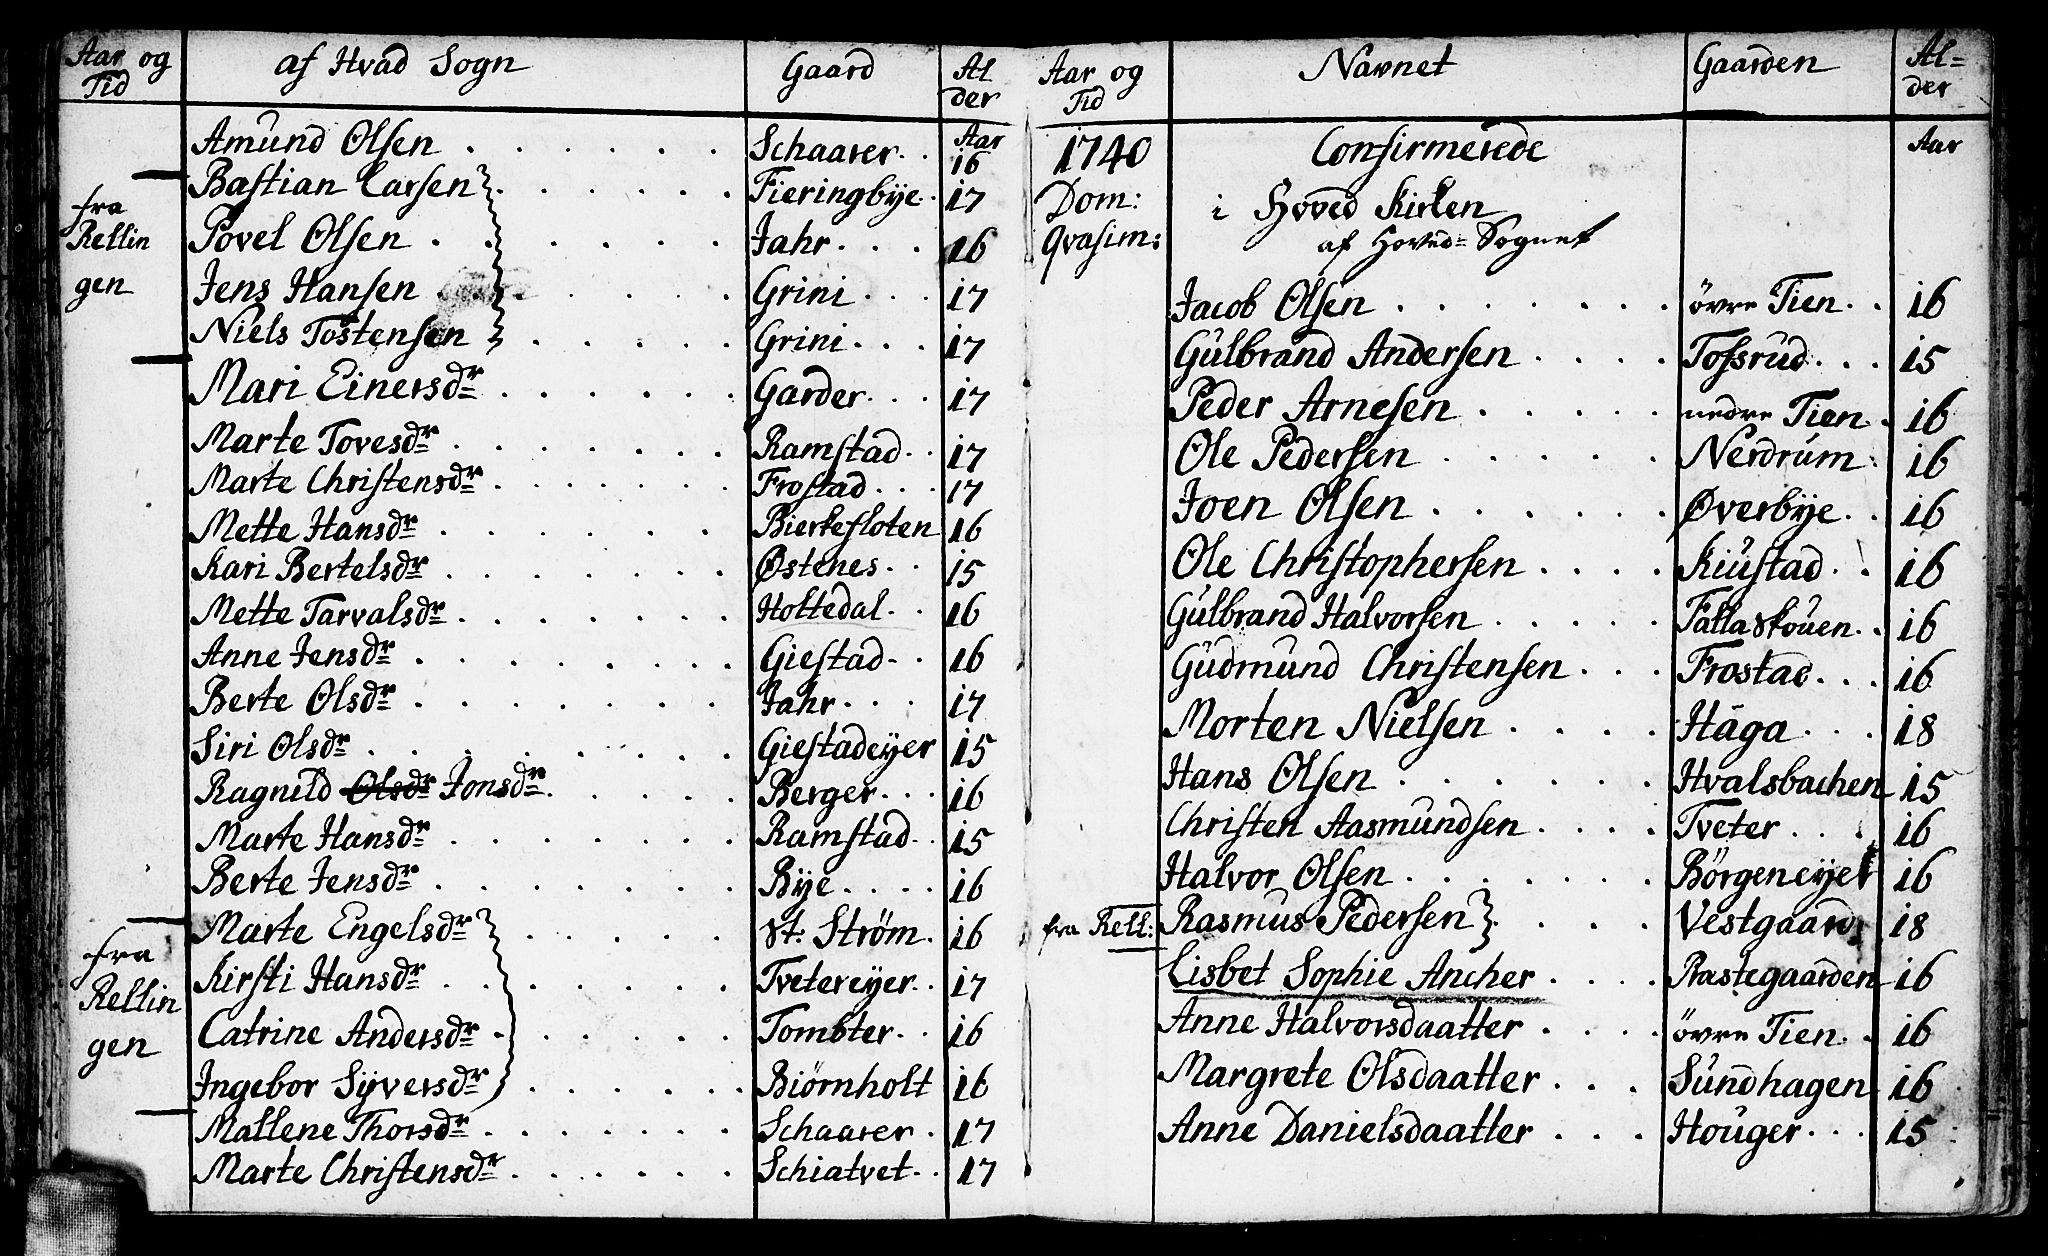 Aar og Tid | af Hvad Sogn | Gaard | Al der
Amund Olsen . . . . . . Schaarer . . Aar 16
Bastian Larsen . . . . . Fieringbÿe . . 17
fra Rellin gen
Povel Olsen . . . . . . Jahr . . . 16
Jens Hansen . . . . . . Grini . . . 17
Niels Tostensen . . . . Grini . . . 17
Mari Einersdr . . . . . Garder . . . 17
Marte Tovesdr . . . . . . Ramstad . . 17
Marte Christensdr . . . . . . Frostad . . . 17
Mette Hansdr . . . . . . Bierkefloten 16
Kari Bertelsdr . . . . . . Østenes . . 15
Mette Tarvalsdr . . . . . . Holtedal . . 16
Anne Jensdr . . . . . . Giestad . . 16
Berte Olsdr . . . . . . Jahr . . . 17
Siri Olsdr . . . . . . Giestadeÿer 15
Ragnild Olsdr Jonsdr . . . . Berger . . . 16
Marte Hansdr . . . . . . Ramstad . . 15
Berte Jensdr . . . . . . Bÿe . . . . 16
Marte Engelsdr . . . . . St: Strøm . 16
fra Rellin gen
Kirsti Hansdr . . . . . . Tvetereÿer . . 17
Catrine Andersdr . . . . . Tombter . . 16
Ingebor Sÿversdr . . . . . Biørnholt 16
Mallene Thorsdr . . . . . . Schaarer . 17
Marte Christensdr . . . . . Schiatvet . . 17
Aar og Tid | Navnet | Gaarden | Al= der
1740 Confirmerede Aar
Dom: i Hoved Kirken
Qvasim: af Hoved= Sognet
Jacob Olsen . . . . . . övre Tien . . 16
Gulbrand Andersen . . . . Tossrud . . . 15
Peder Arnesen . . . . . nedre Tien . 16
Ole Pedersen . . . . . Nerdrum . 16
Joen Olsen . . . . . . Øverbÿe . . 16
Ole Christophersen . . . . Kiustad . . 16
Gulbrand Halvorsen . . . . . Fallaskouen . . 16
Gudmund Christensen . . . Frostad . . . 16
Morten Nielsen . . . . Häga . . . 18
Hans Olsen . . . . . . Hvalsbachen 15
Christen Aasmundsen . . . . Tveter . . . 16
Halvor Olsen . . . . . . Börgeneÿer 16
fra Rell: Rasmus Pedersen . . . . Vestgaard 18
Lisbet Sophie Ancher . . . . Prastegaarden 16
Anne Halvorsdaatter . . . . övre Tien . . 16
Margrete Olsdaatter . . . Sundhagen 16
Anne Danielsdaatter . . . Houger . . . 15